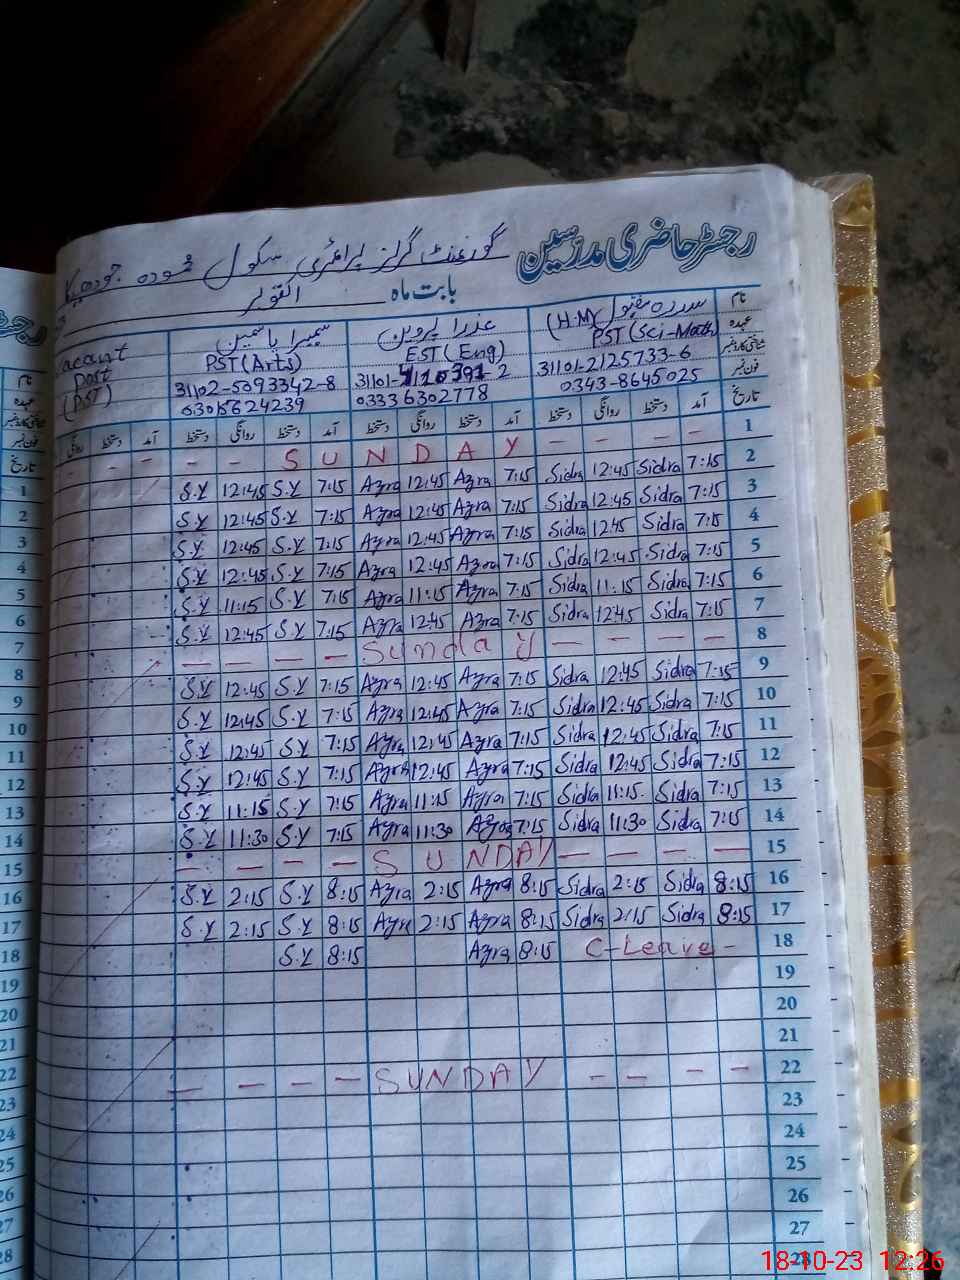 رجسٹر حاضری مدرسین
گورنمنٹ گرلز پرائمری سکول
بابت ماہ اکتوبر
نام سدرہ مقبول (H.M) عذرا پروین سمیرا یاسمین acant
عہدہ PST (Sci-Math) EST (Eng) PST (Arts) Post
شناختی کارڈ نمبر 31101-2125733-6 31101- 2 31102-5093342-8 (PST)
فون نمبر 0343-8645025 03336302778 03015624239
تاریخ آمد دستخط روانگی دستخط آمد دستخط روانگی دستخط آمد دستخط روانگی دستخط آمد دستخط روانگی
1 - - - - S U N D A Y - - - - -
2 7:15 Sidra 12:45 Sidra 7:15 Azra 12:45 Azra 7:15 S.Y 12:45 S.Y
3 7:15 Sidra 12:45 Sidra 7:15 Azra 12:45 Azra 7:15 S.Y 12:45 S.Y
4 7:15 Sidra 12:45 Sidra 7:15 Azra 12:45 Azra 7:15 S.Y 12:45 S.Y
5 7:15 Sidra 12:45 Sidra 7:15 Azra 12:45 Azra 7:15 S.Y 12:45 S.Y
6 7:15 Sidra 11:15 Sidra 7:15 Azra 11:15 Azra 7:15 S.Y 11:15 S.Y
7 7:15 Sidra 12:45 Sidra 7:15 Azra 12:45 Azra 7:15 S.Y 12:45 S.Y
8 - - - - Sunday - - - -
9 7:15 Sidra 12:45 Sidra 7:15 Azra 12:45 Azra 7:15 S.Y 12:45 S.Y
10 7:15 Sidra 12:45 Sidra 7:15 Azra 12:45 Azra 7:15 S.Y 12:45 S.Y
11 7:15 Sidra 12:45 Sidra 7:15 Azra 12:45 Azra 7:15 S.Y 12:45 S.Y
12 7:15 Sidra 12:45 Sidra 7:15 Azra 12:45 Azra 7:15 S.Y 12:45 S.Y
13 7:15 Sidra 11:15 Sidra 7:15 Azra 11:15 Azra 7:15 S.Y 11:15 S.Y
14 7:15 Sidra 11:30 Sidra 7:15 Azra 11:30 Azra 7:15 S.Y 11:30 S.Y
15 - - - - SUNDAY - - - -
16 8:15 Sidra 2:15 Sidra 8:15 Azra 2:15 Azra 8:15 S.Y 2:15 S.Y
17 8:15 Sidra 2:15 Sidra 8:15 Azra 2:15 Azra 8:15 S.Y 2:15 S.Y
18 C-Leave - 8:15 Azra 8:15 S.Y
19
20
21
22 - - - - SUNDAY - - - -
23
24
25
26
27
28
رجسٹر
نام
عہدہ
شناختی کارڈ نمبر
فون نمبر
تاریخ
1
2
3
4
5
6
7
8
9
10
11
12
13
14
15
16
17
18
19
20
21
22
23
24
25
26
27
28
18-10-23 12:26